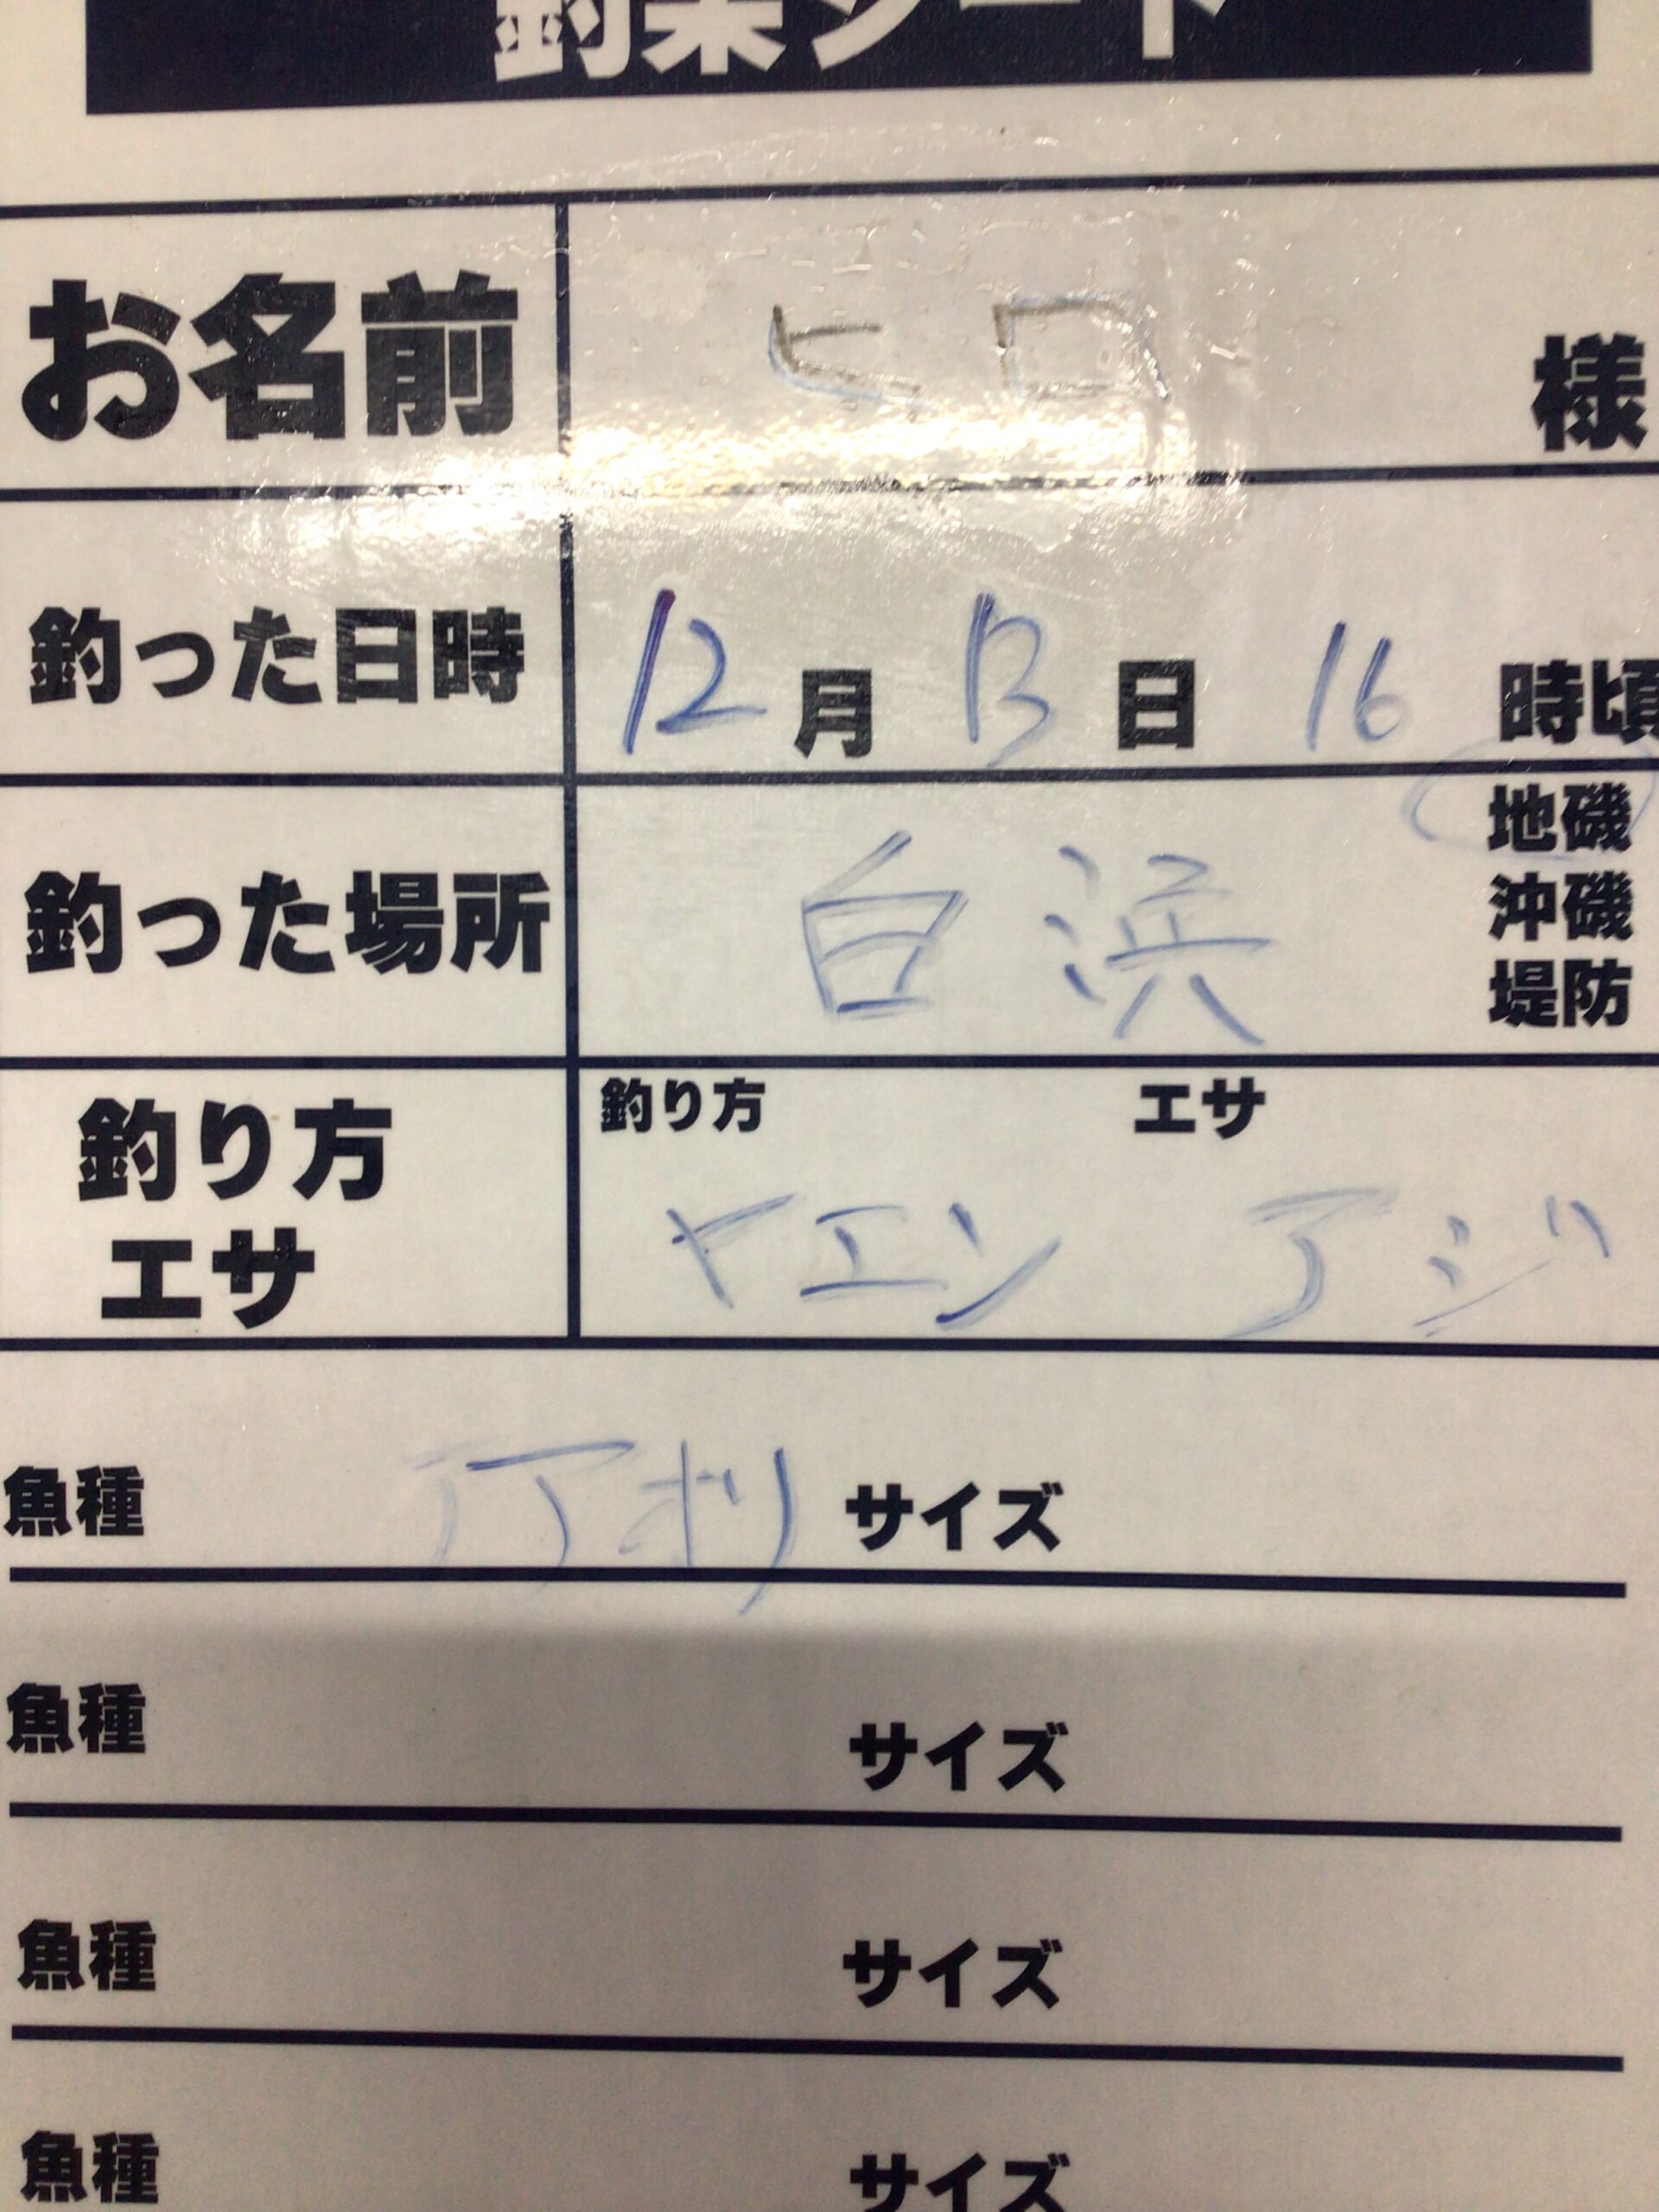 釣果シート
お名前 ヒロ 様
釣った日時 12月 13日 16時頃
釣った場所 白浜 地磯
沖磯
堤防
釣り方 エサ
釣り方 ヤエン アジ
エサ
魚種 アオリ サイズ
魚種 サイズ
魚種 サイズ
魚種 サイズ